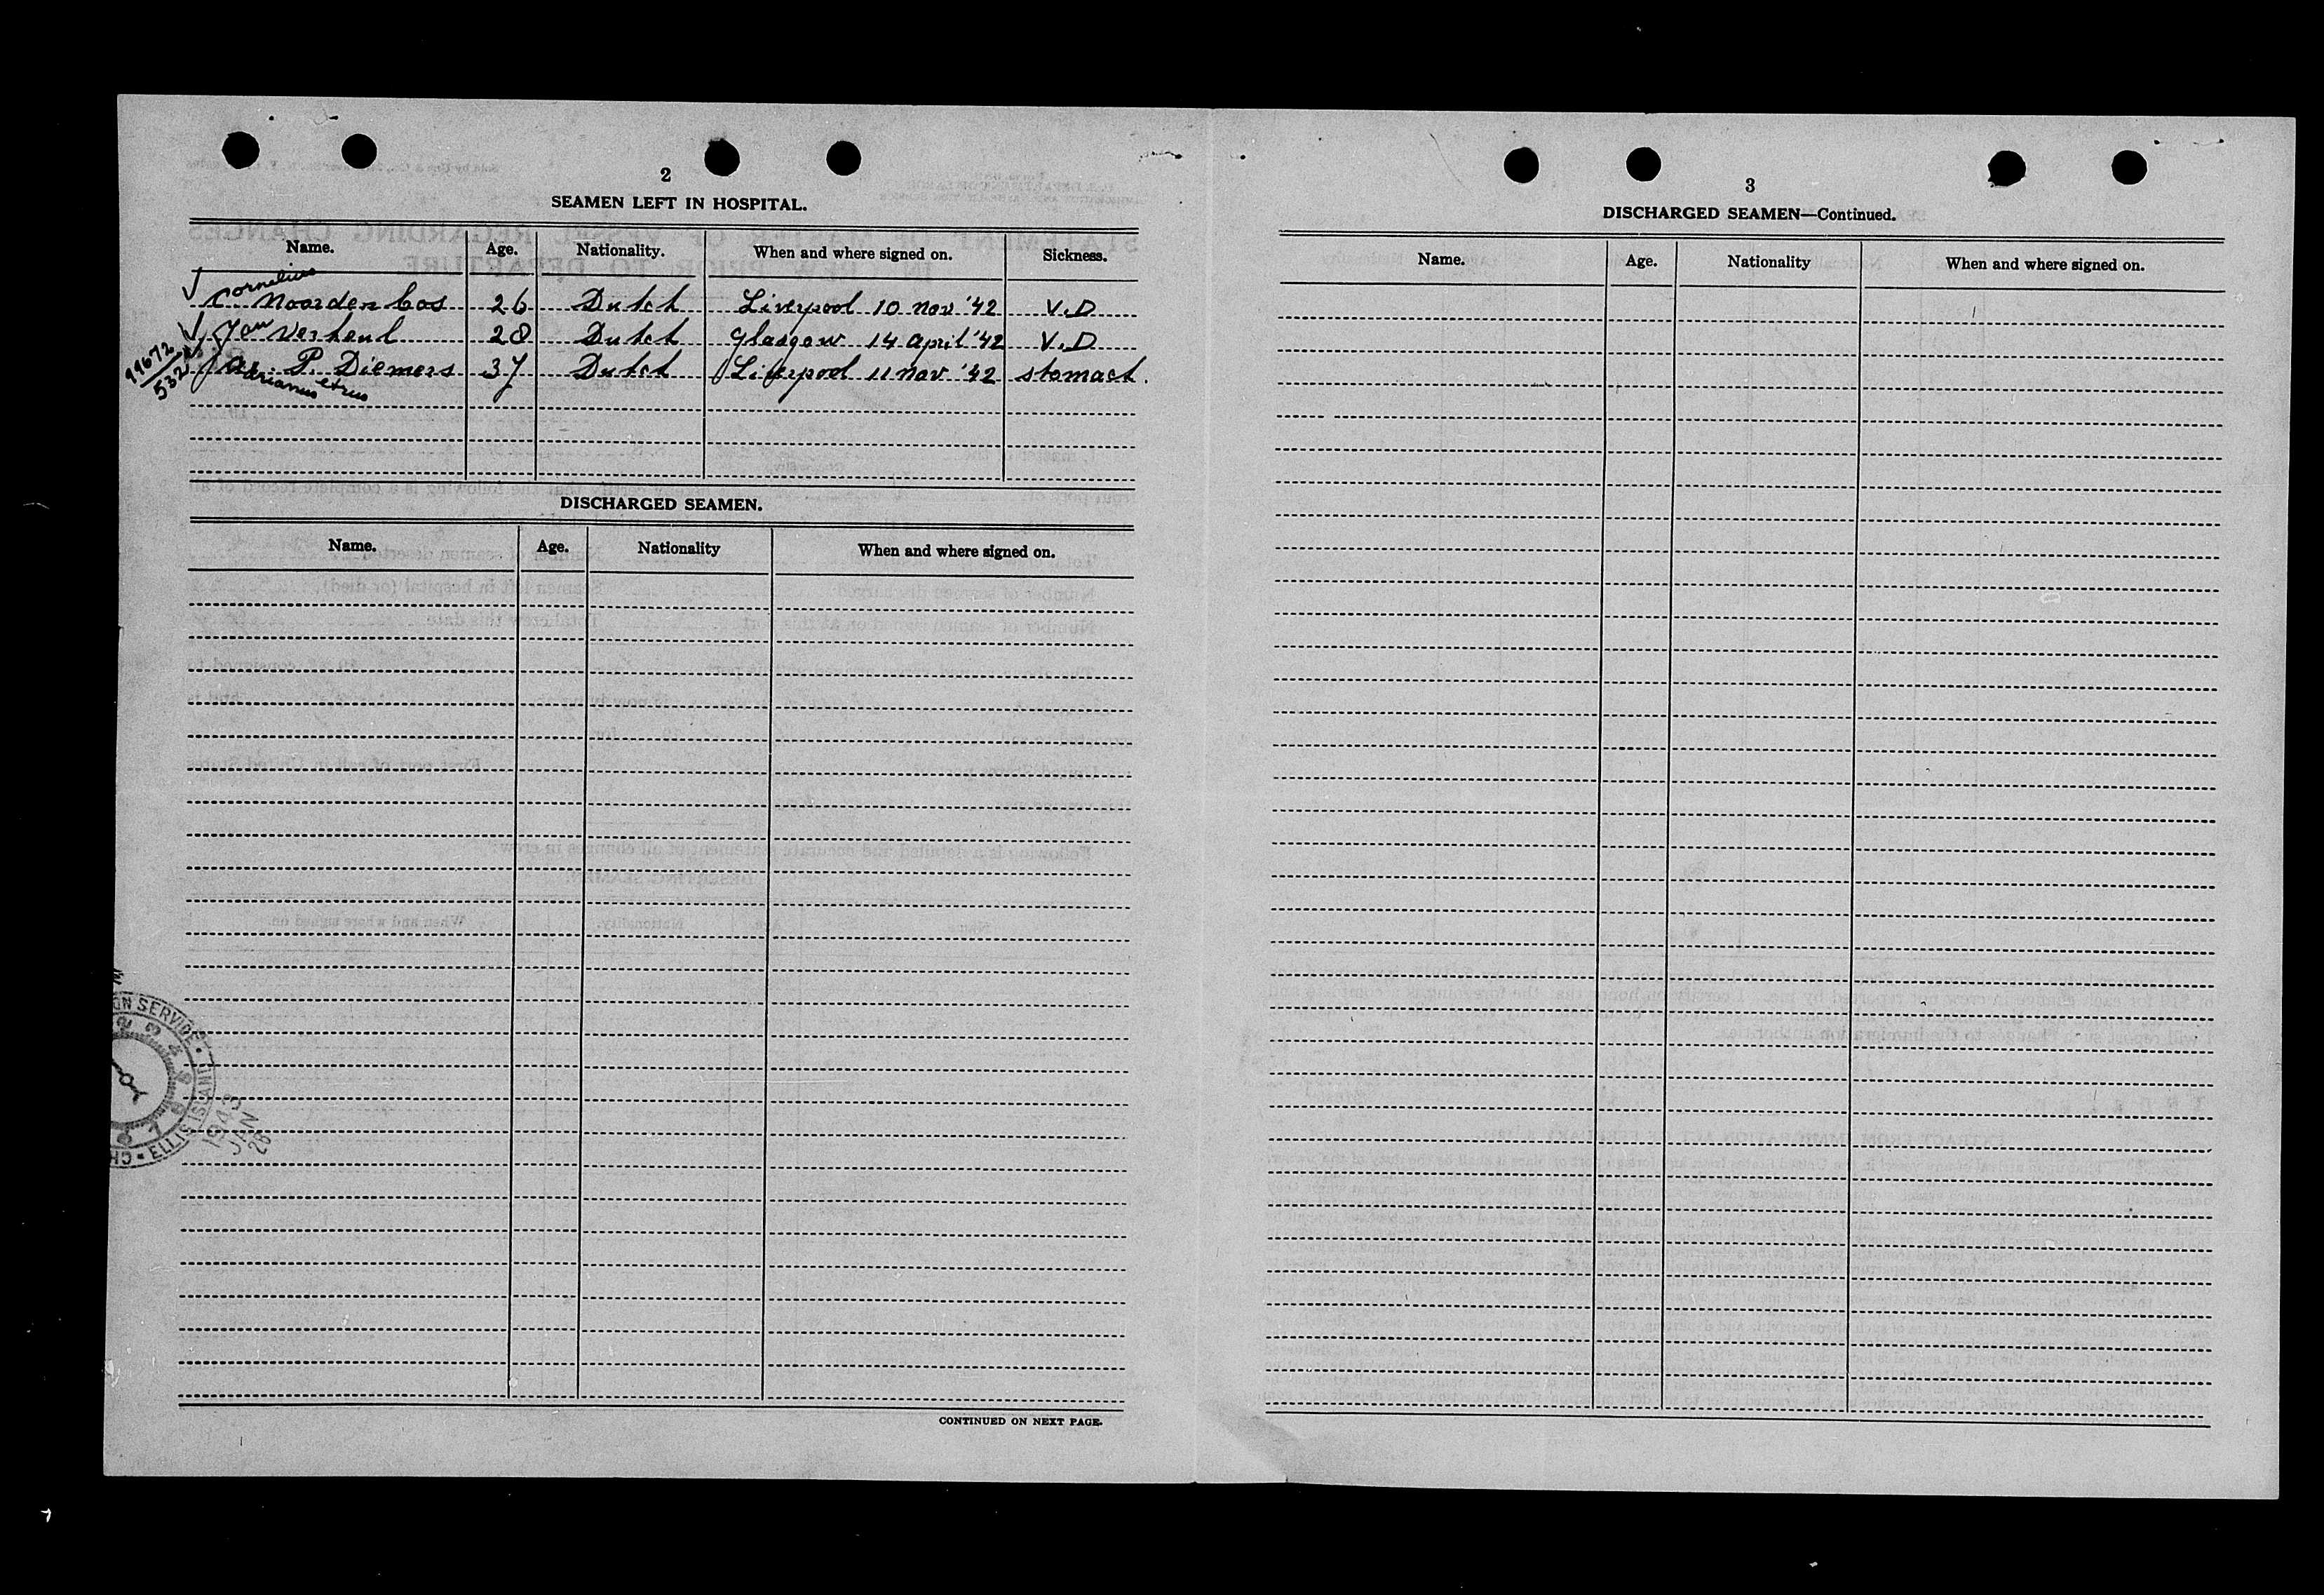 2
SEAMEN LEFT IN HOSPITAL.
Name. Age. Nationality. When and where signed on. Sickness.
Cornelius
C. Noordenbos 26 Dutch Liverpool 10 nov '42 V.D
Jan Verheul 28 Dutch Glasgow 14 april '42 V.D
99672/532
A. P. Diemers 37 Dutch Liverpool 11 nov '42 stomach.
Adrianus etrus
DISCHARGED SEAMEN.
Name. Age. Nationality When and where signed on.
ON SERVICE
ELLIS ISLAND
1943
JAN
28
CONTINUED ON NEXT PAGE.
3
DISCHARGED SEAMEN—Continued.
Name. Age. Nationality When and where signed on.